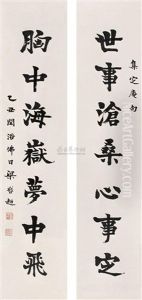 集定庵句
世事滄桑心事定
胸中海嶽夢中飛
乙丑閏浴佛日梁啟超